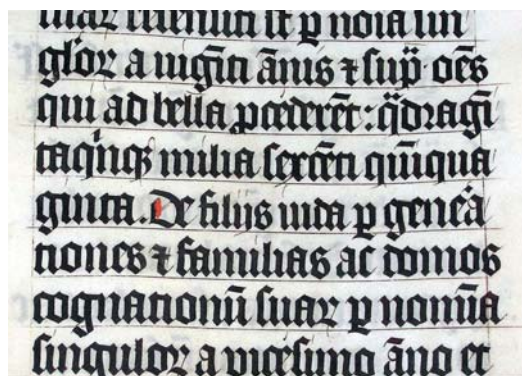 suaꝝ recensiti sūt ꝑ noīa sin
gloꝝ a uigīti ānis ⁊ sup̄ · oēs
qui ad bella ꝓcederēt : q̄dragī
taqinqꝫ milia sexcēti quīqua
ginta . De filijs iuda ꝑ gene͛a
tiones ⁊ familias ac domos
cognationū suaꝝ ꝑ nomīa
singuloꝝ a vicesimo āno et